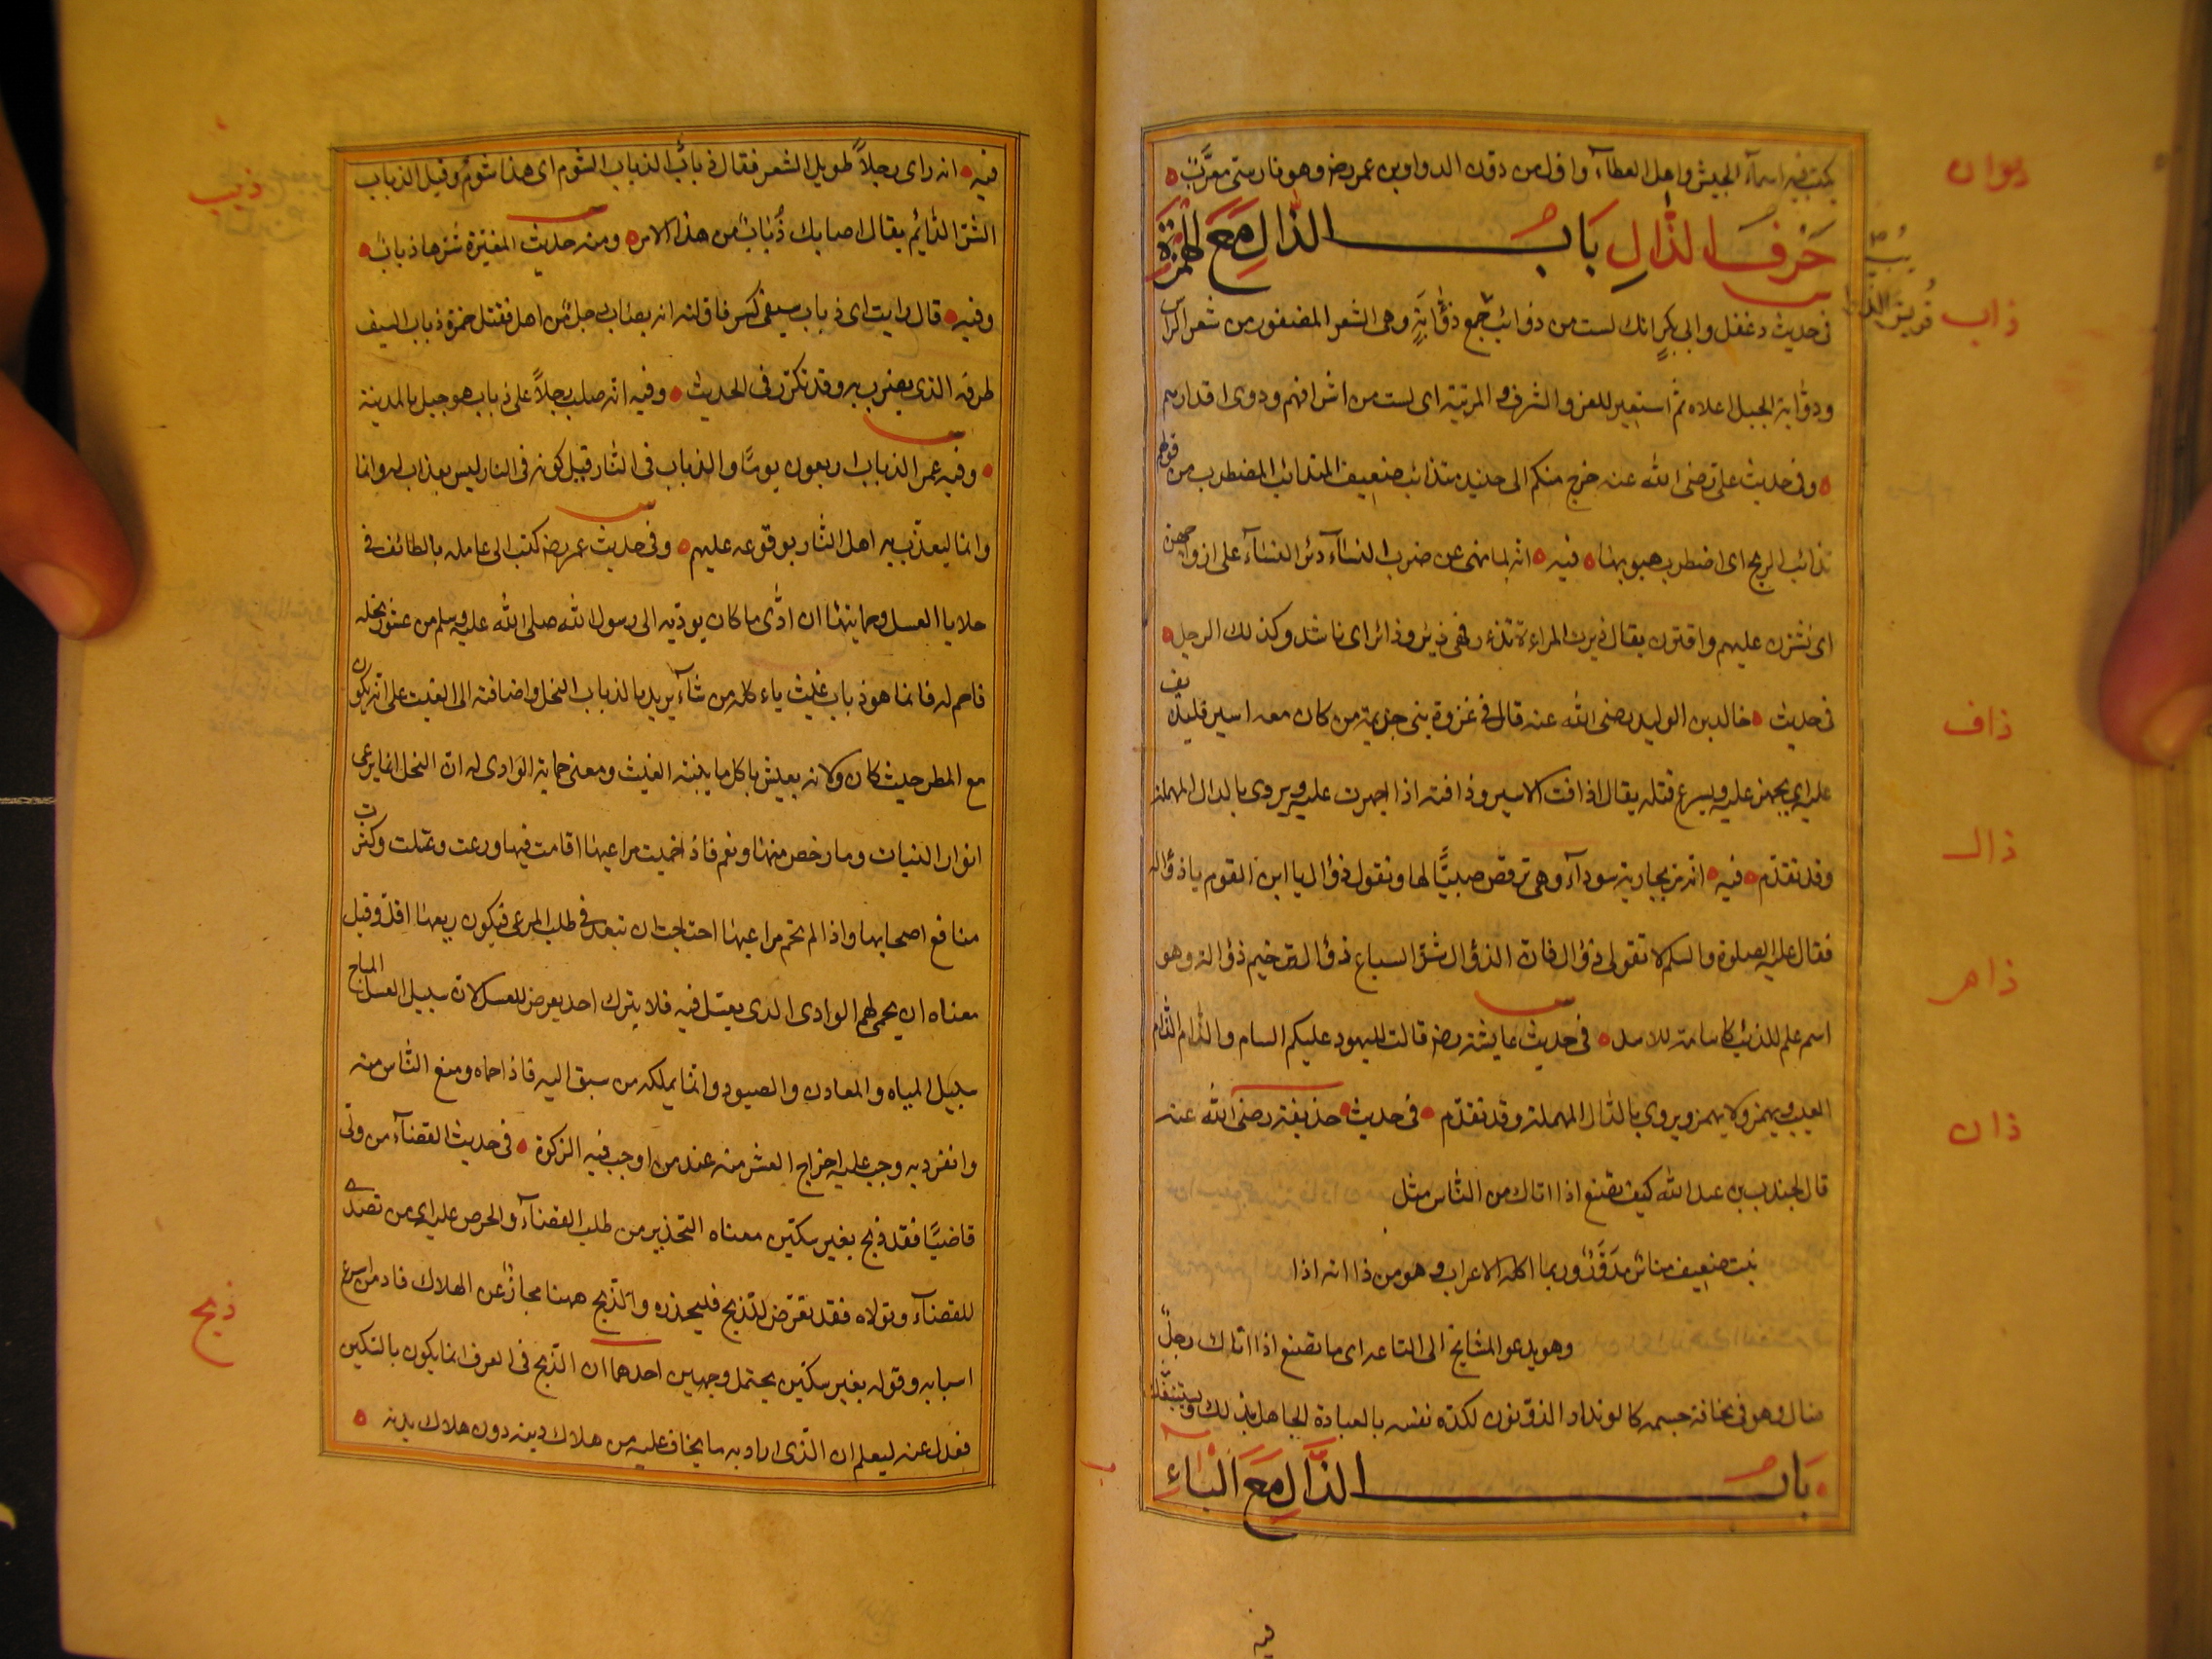 يكتب فيه اسمآء الجيش واهل العطآء واول من دوّن الدواوين عمر رضه وهو فارسىّ معرّب
ديوان
حَرْفُ الذَّالِ بَابُ الذّالِ مَعَ الهَمْزَةِ
ذاب
فى حديث دغفل وابى بكرٍ انك لست من ذوائب جمع ذؤابةٍ وهى الشعر المضفور من شعر الراس
وذؤابة الجبل اعلاه ثم استعير للعز والشرف والمرتبة اى لست من اشرافهم وذوى اقدارهم
وفى حديث على رضى الله عنه خرج منكم الى جنيد متذائب ضعيف المتذائب المضطرب من قولهم
تذائب الريح اى اضطرب هبوبها فيه انه لما نهى عن ضرب النسآء ذئر النسآء على ازواجهن
اى نشزن عليهم واجترن يقال ذيرت المراءة تذءر فهى ذيئر وذائر اى ناشذ وكذلك الرجل
ذاف
فى حديث خالد بن الوليد رضى الله عنه قال فى غزوة بنى جذيمة من كان معه اسير فليذيف
عليه اى يجهز عليه ويسرع قتله يقال اذافت الاسير وذافته اذا اجهزت عليه ويروى بالدال المهملة
ذال
وقد تقدّم فيه انه مر بجارية سودآء وهى ترقص صبيًّا لها وتقول ذؤال يا ابن القوم يا ذؤاله
فقال عليه الصلوة والسلم لا تقولى ذؤال فان الذؤال شرّ السباع ذؤال ترخيم ذؤالة وهو
ذام
اسم علم للذئب كاسامة للاسد فى حديث عايشة رضه قالت لليهود عليكم السام والذام الذام
العيب ويهمز ولا يهمز ويروى بالدال المهملة وقد تقدّم فى حديث حذيفة رضى الله عنه
ذان
قال لجندب بن عبد الله كيف تصنع اذا اتاك من الناس مثل
نبت ضعيف وربما اكله الاعراب وهو من ذا انه اذا
وهو يدعو المشايخ الى اتباعه اى ما تصنع اذا اتاك رجل
ضال وهو فى نحافة جسمه كالوتد او الذؤنون لكدّه نفسه بالعبادة لجاهل بذلك ويستتبعك
بَابُ الذَّالِ مَعَ الْبَاءِ
فيه
فيه انه راى رجلاً طويل الشعر فقال ذبابٌ الذباب الشوم اى هذا شوم وقيل الذباب
ذبب
الشرّ الدّائم يقال اصابك ذُبابٌ من هذا الامر ومنه حديث المغيرة شرها ذباب
وفيه قال رايت اى ذباب سيفى كسر فاولته انه يصاب رجل من اهلى فقتل حمزة ذباب السيف
طرفه الذى يضرب به وقد تكرّر فى الحديث وفيه انه صلب رجلاً على ذباب هو جبل بالمدينة
وفيه عمر الذباب اربعون يومًا والذباب فى النار قيل كونه فى النار ليس بعذاب له وانما
وانما ليعذّب به اهل النار بوقوعه عليهم وفى حديث عمر رضه كتب الى عامله بالطائف فى
خلايا العسل وحمايتها ان ادّى ما كان يوديه الى رسول الله صلى الله عليه وسلم من عشور نحله
فاحم له فانما هو ذباب غيث ياءكله من شآء يريد بالذباب النحل واضافته الى الغيث على انه يكون
مع المطر حيث كان ولانه يعيش باكل ما ينبته الغيث ومعنى حماية الوادى له ان النحل انما يرعى
انوار النبات وما رخص منها ونعم فاذا حميت مراعيها اقامت فيها ورعت وعسلت وكثرت
منافع اصحابها واذا لم تحم مراعيها احتاجت ان تبعد فى طلب المرعى فيكون ريعها اقل وقيل
معناه ان يحمى لهم الوادى الذى يعسل فيه فلا يترك احد يعرض للعسل لان سبيل العسل المباح
سبيل المياه والمعادن والصيود وانما يملكه من سبق اليه فاذا حماه ومنع الناس منه
وانفرد به وجب عليه اخراج العشر منه عند من اوجب فيه الزكوة فى حديث القضآء من ولّى
قاضيًا فقد ذبح بغير سكّين معناه التحذير من طلب القضآء والحرص عليه اى من تصدى
ذبح
للقضآء وتولاه فقد تعرّض للذبح فليحذره والذّبح ههنا مجازٌ عن الهلاك فانه من اسرع
اسبابه وقوله بغير سكّين يحتمل وجهين احدهما ان الذّبح فى العرف انما يكون بالسّكين
فعدل عنه ليعلم ان الّذى اراد به ما يخاف عليه من هلاك دينه دون هلاك بدنه